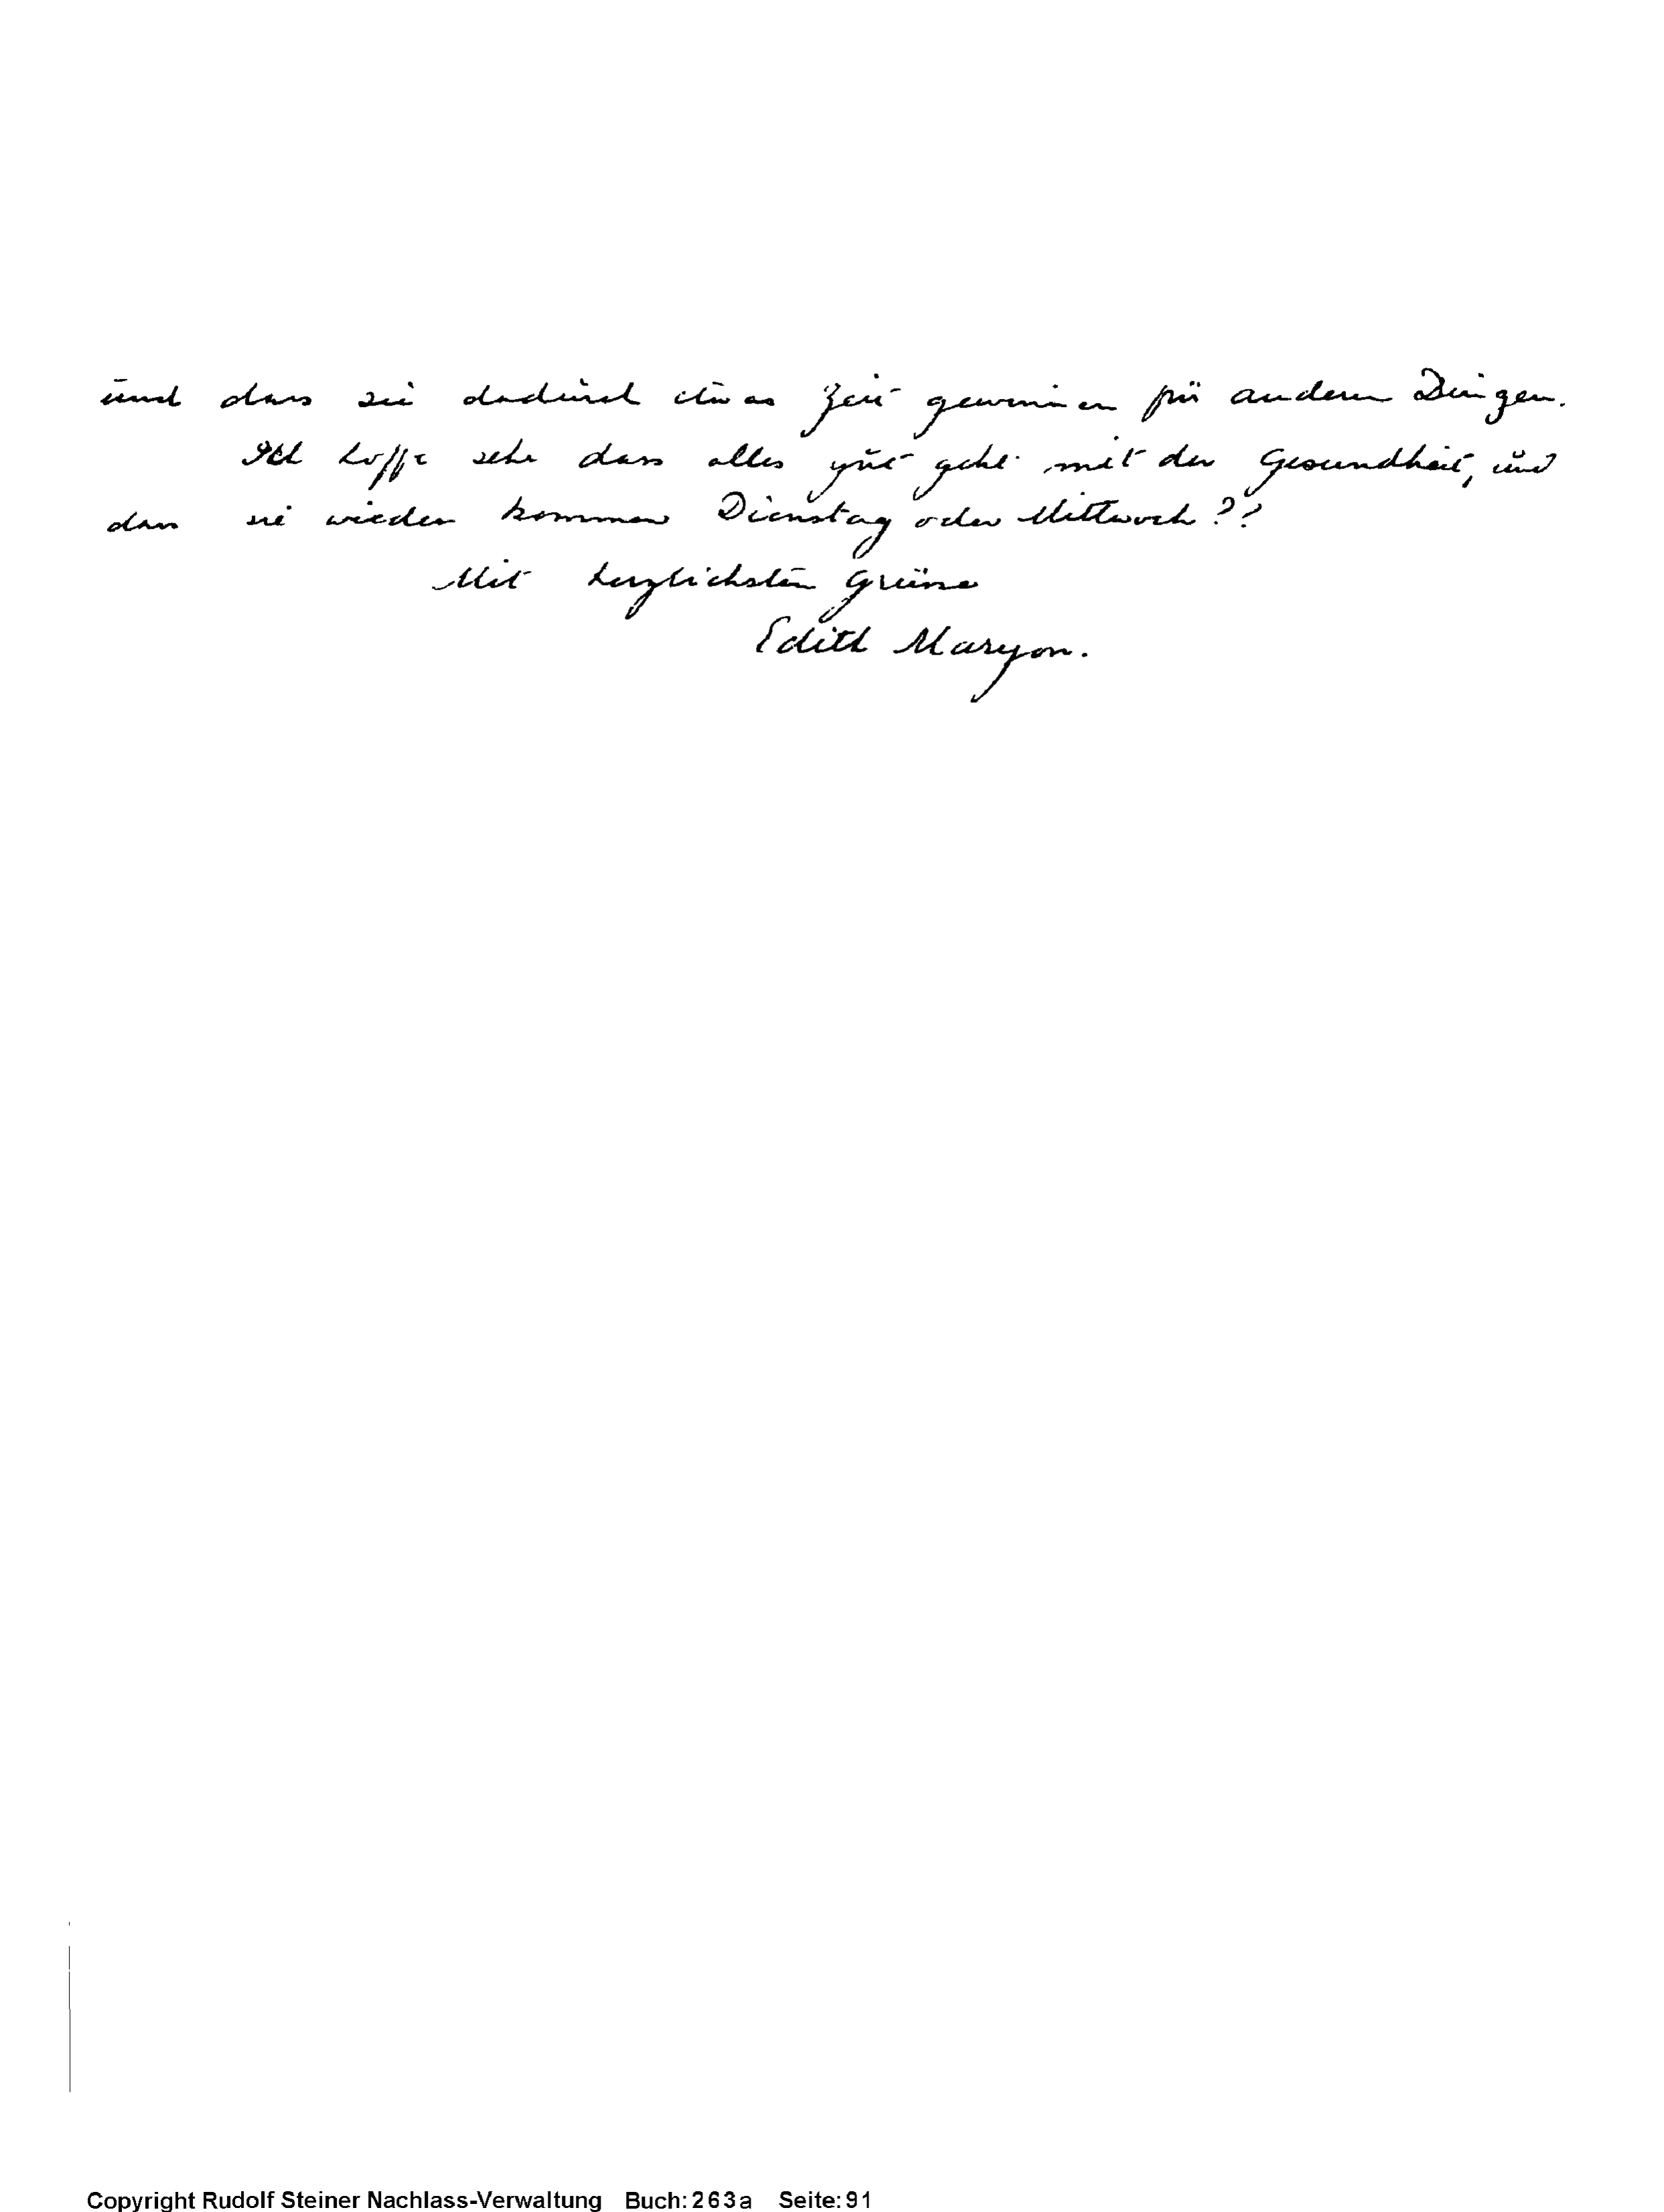 und dass sie dadurch etwas Zeit gewinnen für anderen Dingen.
Ich hoffe sehr dass alles gut geht mit der Gesundheit, und
dass sie wieder kommen Dienstag oder Mittwoch??
Mit herzlichsten Grüsse
Edith Maryon.
Copyright Rudolf Steiner Nachlass-Verwaltung Buch: 263a Seite: 91